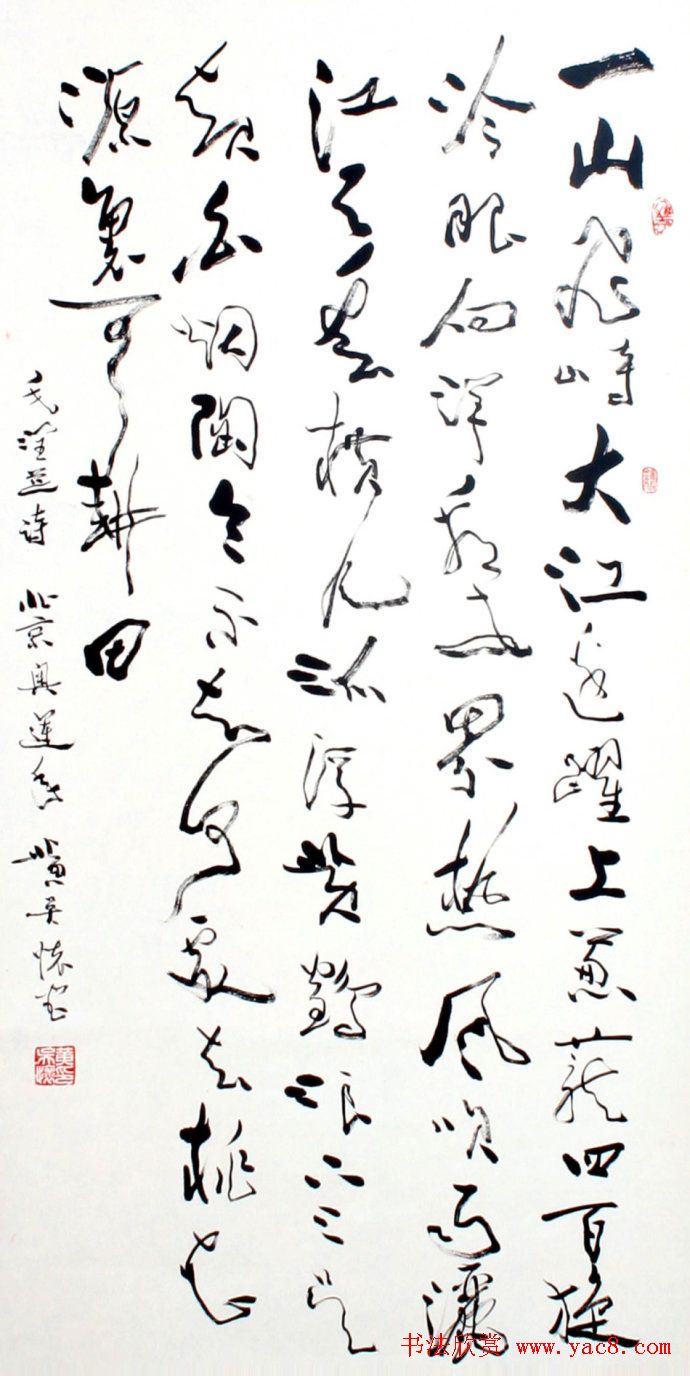 一山飞峙大江边躍上葱蘢四百旋
冷眼向洋看世界热风吹雨灑
江天云横九派浮黄鹤浪下三吴
起白烟陶令不知何處去桃花
源裏可耕田
毛澤东诗 北京奥运年 黄吴怀书
书法欣赏 www.yac8.com